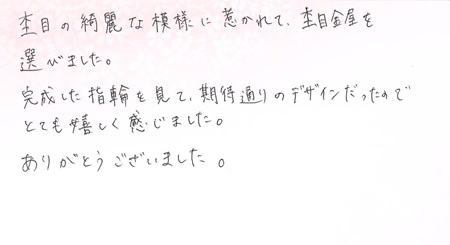 杢目の綺麗な模様に惹かれて、杢目金屋を
選びました。
完成した指輪を見て、期待通りのデザインだったので
とても嬉しく感じました。
ありがとうございました。